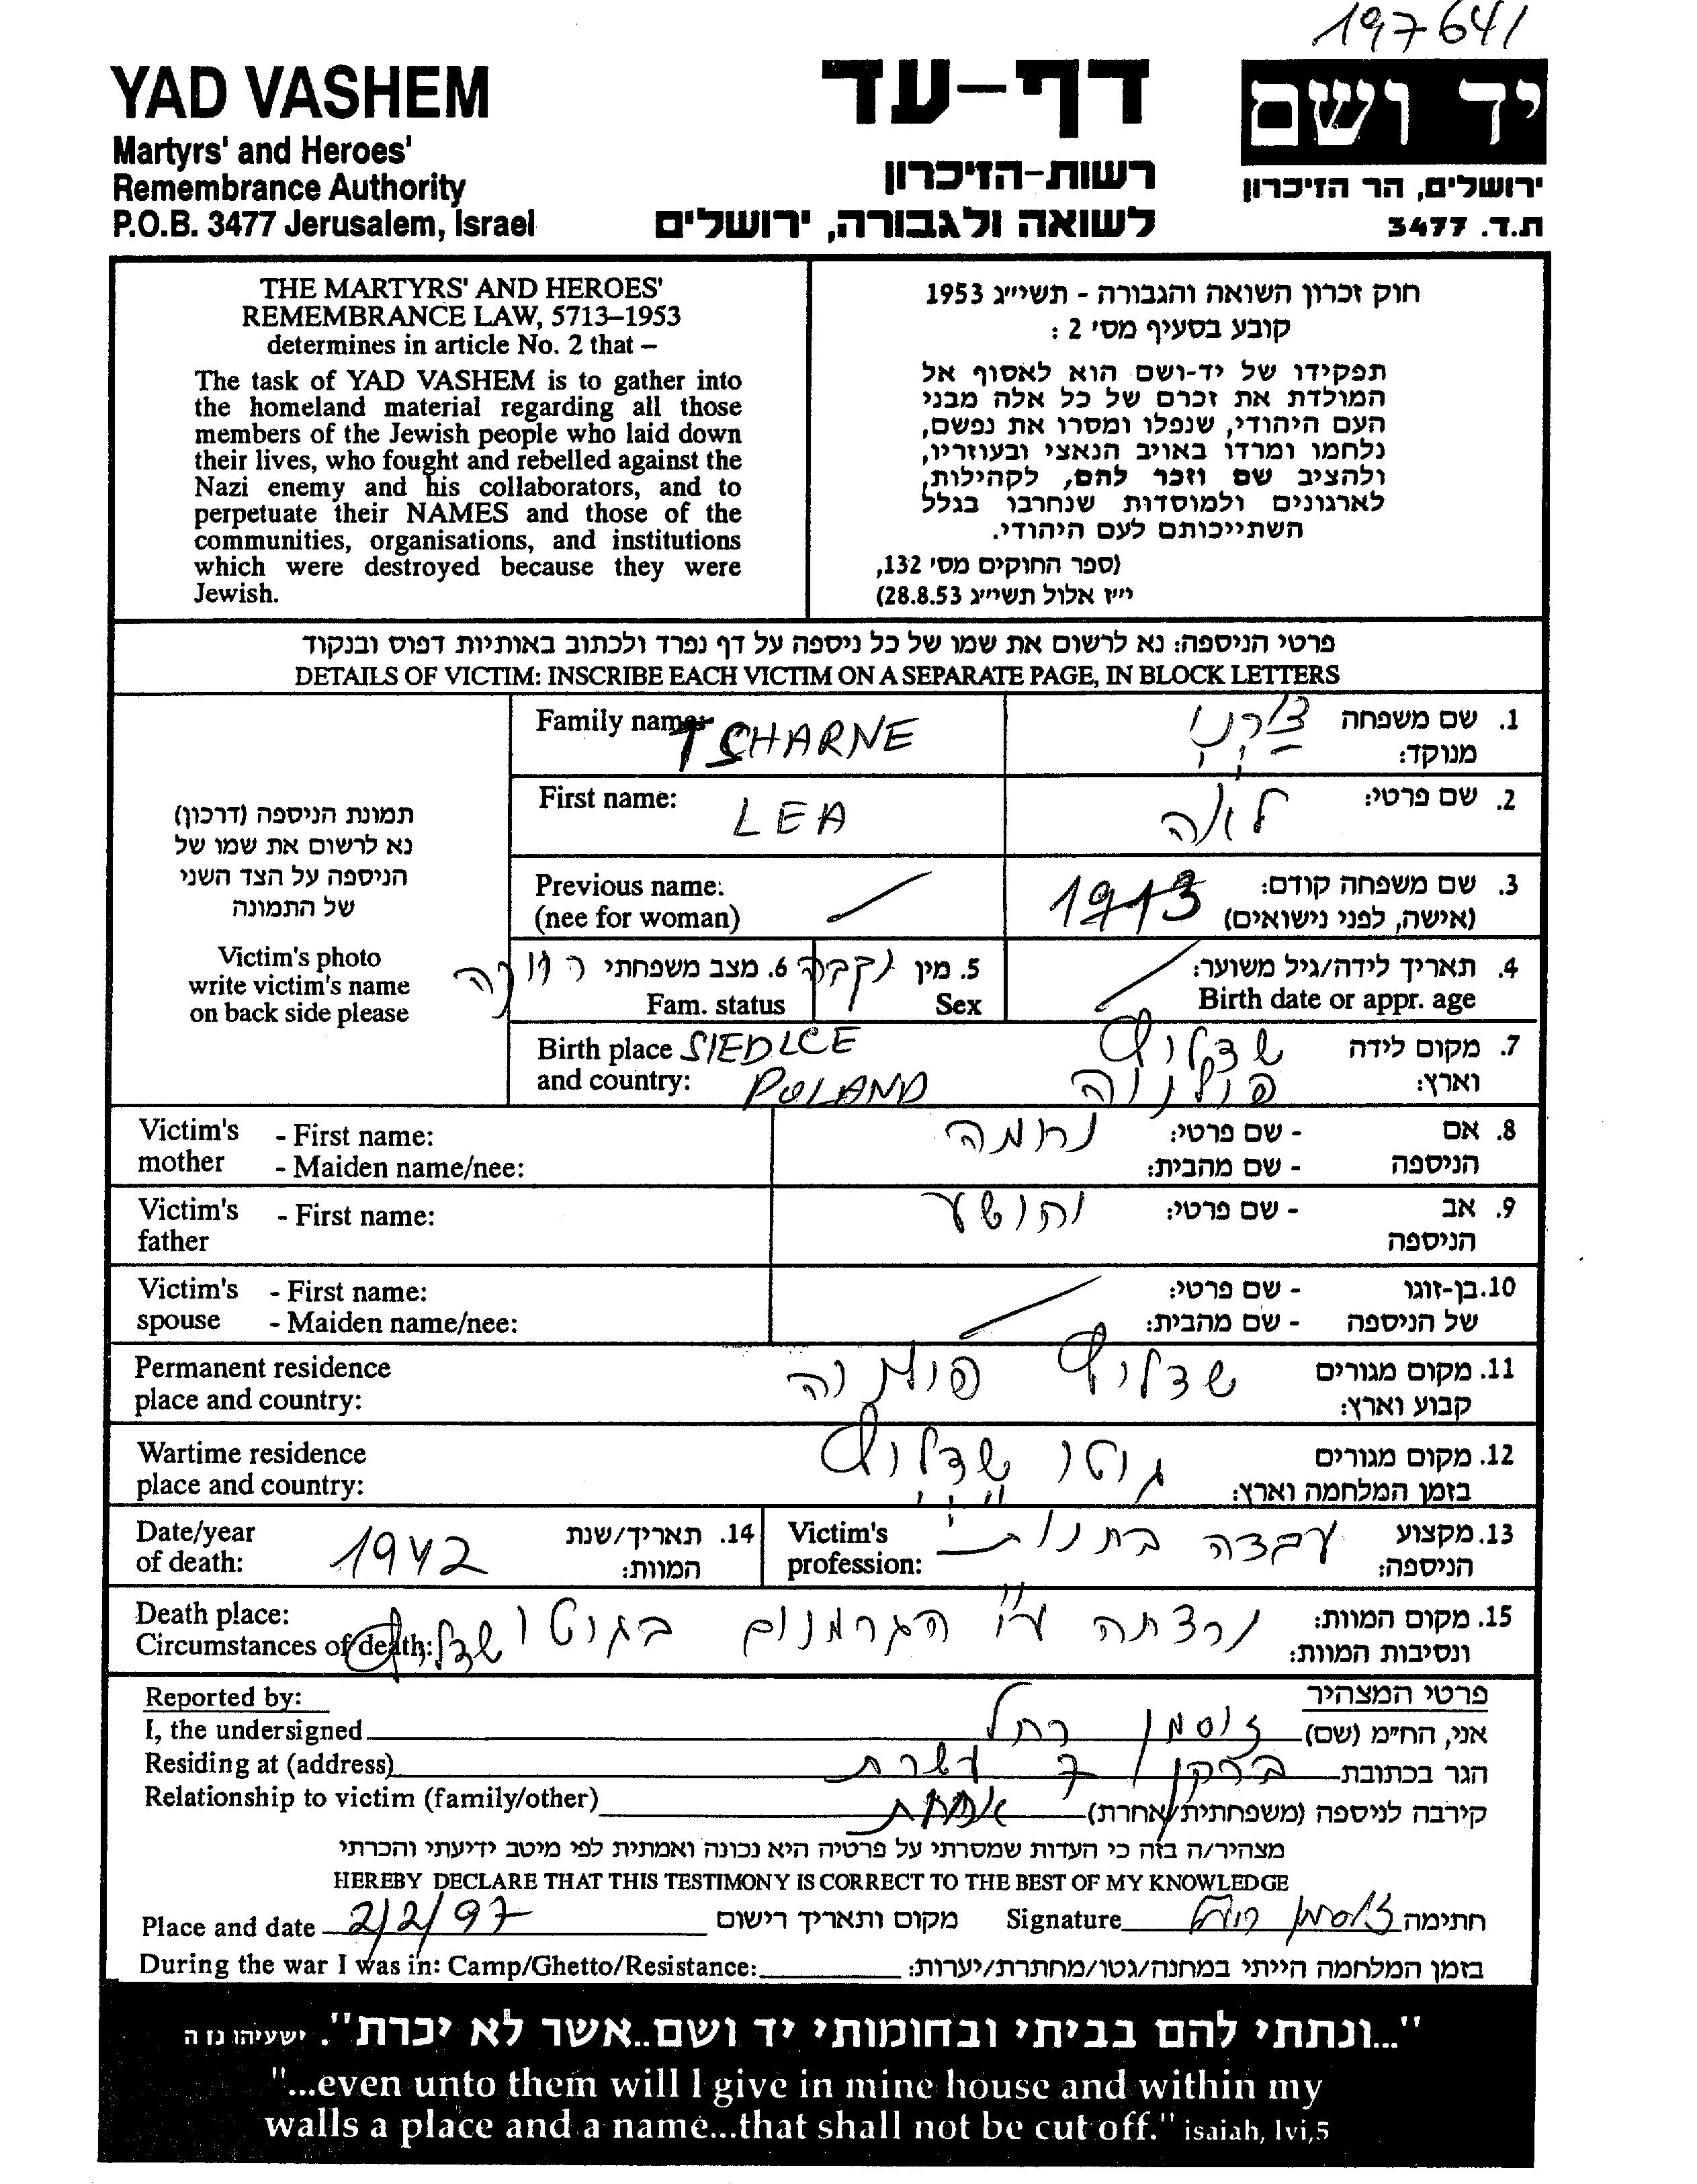 197641
YAD VASHEM
Martyrs' and Heroes'
Remembrance Authority
P.O.B. 3477 Jerusalem, Israel
דף-עד
רשות-הזיכרון
לשואה ולגבורה, ירושלים
יד ושם
ירושלים, הר הזיכרון
ת.ד. 3477
THE MARTYRS' AND HEROES'
REMEMBRANCE LAW, 5713–1953
determines in article No. 2 that –
The task of YAD VASHEM is to gather into
the homeland material regarding all those
members of the Jewish people who laid down
their lives, who fought and rebelled against the
Nazi enemy and his collaborators, and to
perpetuate their NAMES and those of the
communities, organisations, and institutions
which were destroyed because they were
Jewish.
חוק זכרון השואה והגבורה - תשי״ג 1953
קובע בסעיף מס׳ 2 :
תפקידו של יד-ושם הוא לאסוף אל
המולדת את זכרם של כל אלה מבני
העם היהודי, שנפלו ומסרו את נפשם,
נלחמו ומרדו באויב הנאצי ובעוזריו,
ולהציב שם וזכר להם, לקהילות,
לארגונים ולמוסדות שנחרבו בגלל
השתייכותם לעם היהודי.
(ספר החוקים מס׳ 132,
י״ז אלול תשי״ג 28.8.53)
פרטי הניספה: נא לרשום את שמו של כל ניספה על דף נפרד ולכתוב באותיות דפוס ובנקוד
DETAILS OF VICTIM: INSCRIBE EACH VICTIM ON A SEPARATE PAGE, IN BLOCK LETTERS
תמונת הניספה (דרכון)
נא לרשום את שמו של
הניספה על הצד השני
של התמונה
Victim's photo
write victim's name
on back side please
Family name: TSCHARNE
1. שם משפחה
מנוקד:
First name: LEA
2. שם פרטי: לאה
Previous name:
(nee for woman)
3. שם משפחה קודם: 1913
(אישה, לפני נישואים)
4. תאריך לידה/גיל משוער:
Birth date or appr. age
5. מין נקבה
Sex
6. מצב משפחתי רווקה
Fam. status
Birth place SIEDLCE
and country: POLAND
7. מקום לידה שדליץ
וארץ: פולניה
Victim's - First name:
mother - Maiden name/nee:
8. אם - שם פרטי: נחמה
הניספה - שם מהבית:
Victim's - First name:
father
9. אב - שם פרטי: יהושע
הניספה
Victim's - First name:
spouse - Maiden name/nee:
10. בן-זוגו - שם פרטי:
של הניספה - שם מהבית:
Permanent residence
place and country:
11. מקום מגורים שדליץ
קבוע וארץ:
Wartime residence
place and country:
12. מקום מגורים גיטו שדליץ
בזמן המלחמה וארץ:
Date/year
of death: 1942
14. תאריך/שנת
המוות:
Victim's
profession:
13. מקצוע עבדה בחנות
הניספה:
Death place:
Circumstances of death:
15. מקום המוות: נרצחה ע״י הגרמנים בגיטו שדליץ
ונסיבות המוות:
Reported by:
פרטי המצהיר
I, the undersigned
אני, הח״מ (שם) זוסמן רחל
Residing at (address)
הגר בכתובת
Relationship to victim (family/other)
קירבה לניספה (משפחתית/אחרת)
מצהיר/ה בזה כי העדות שמסרתי על פרטיה היא נכונה ואמתית לפי מיטב ידיעתי והכרתי
HEREBY DECLARE THAT THIS TESTIMONY IS CORRECT TO THE BEST OF MY KNOWLEDGE
Place and date 2/2/97 מקום ותאריך רישום Signature זוסמן רחל חתימה
During the war I was in: Camp/Ghetto/Resistance:
בזמן המלחמה הייתי במחנה/גטו/מחתרת/יערות:
"...ונתתי להם בביתי ובחומותי יד ושם..אשר לא יכרת". ישעיהו נז ה
"...even unto them will I give in mine house and within my
walls a place and a name...that shall not be cut off." isaiah, lvi,5